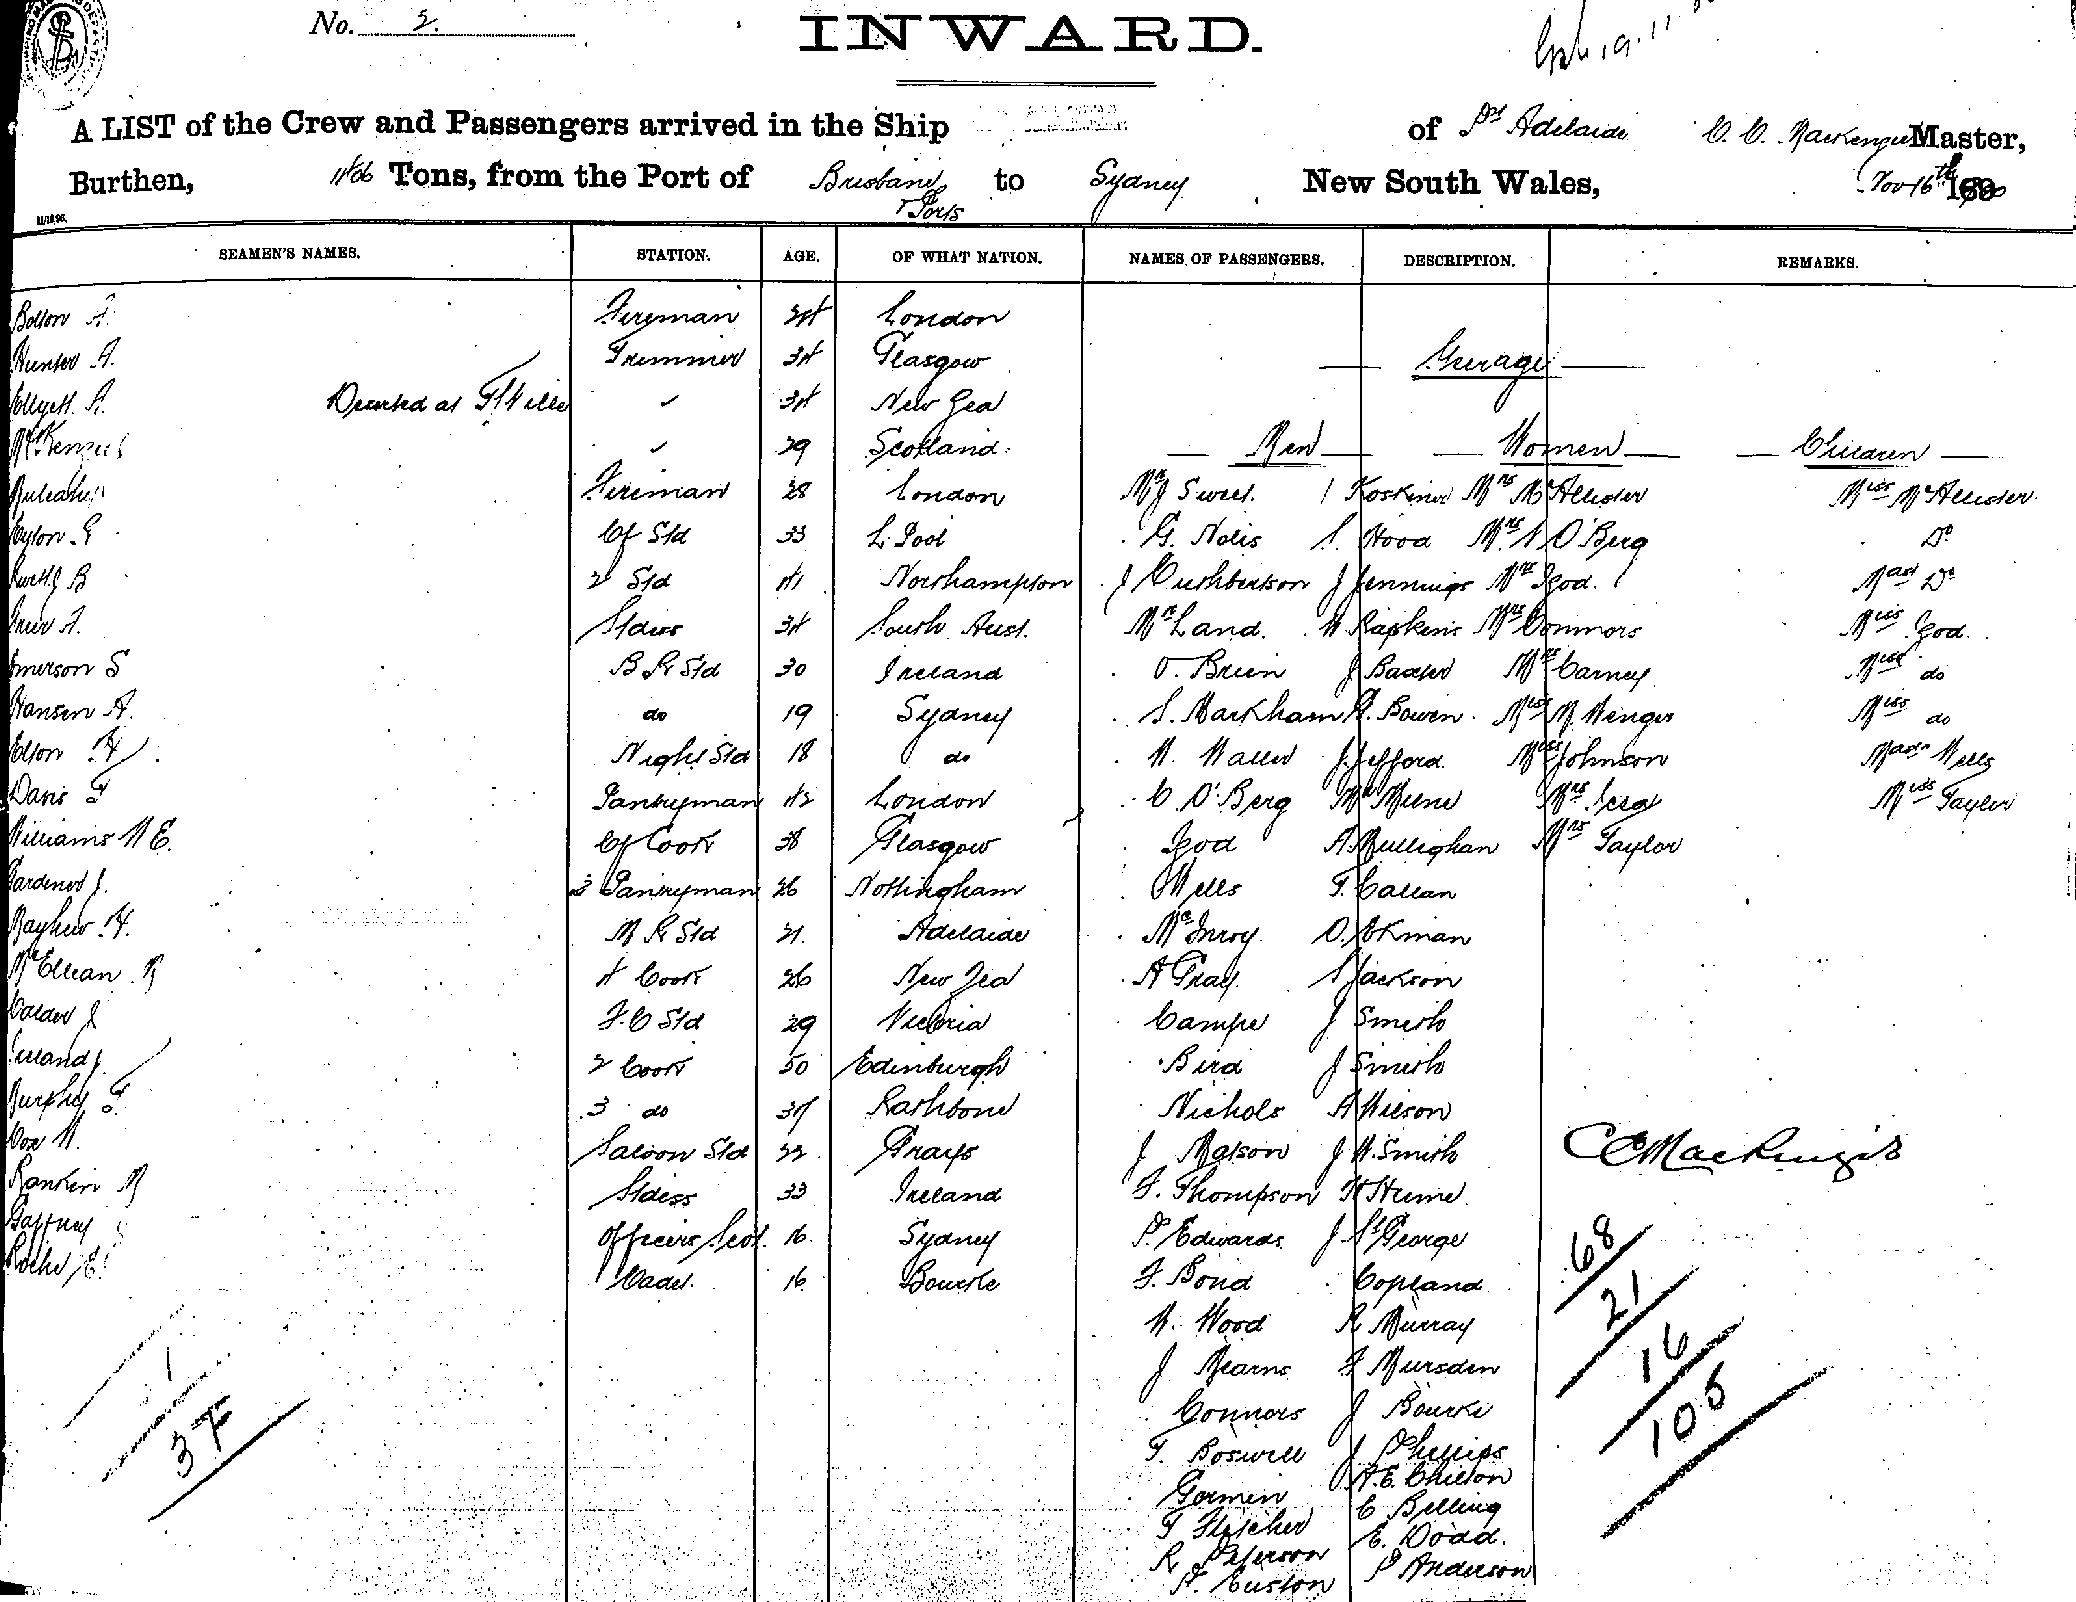 No. 2.
INWARD.
A LIST of the Crew and Passengers arrived in the Ship of Pt Adelaide C. C. Mackenzie Master,
Burthen, Tons, from the Port of Brisbane & Ports to Sydney New South Wales, Nov 16th
SEAMEN'S NAMES. STATION. AGE. OF WHAT NATION. NAMES OF PASSENGERS. DESCRIPTION. REMARKS.
Bolton A. Fireman London
Hunter A. Trimmer 34 Glasgow Steerage
Deserted at T'Ville ✓ 34 New Zea
McKenzie ✓ 29 Scotland. Men Women Children
Fireman 28 London Mr J Sweet. Koskiner Mrs McAllister Miss McAllister
Cf Std 33 L. Pool G. Nolis S. Hood Mrs O'Berg Do
B 2 Std 41 Northampton J Cuthbertson J Jennings Mrs God. Mast Do
A. Stdess 34 South Aust. Mr Land. W Rapkins Mrs Connors Miss God.
Emerson S B R Std 30 Ireland O. Brien J Baxter Mrs Carney Miss do
Hansen A. do 19 Sydney S. Markham A. Bowen. Miss M. Menger Miss do
Elton H. Night Std 18 do W. Waller J. Jefford. Miss Johnson Mast Wells
Davis F Pantryman 42 London C O'Berg W Milne Mrs Miss Taylor
Williams W E. Cf Cook 38 Glasgow God A Mullighan Mrs Taylor
Gardener J. 3 Pantryman 26 Nottingham Wells T. Callan
Mayhew H. M R Std 21. Adelaide McInroy O. Ekman
McEllean R 4 Cook 26 New Zea A Gray. S Jackson
Calder J F. C Std 29 Victoria Campe J Smith
Ireland J. 2 Cook 50 Edinburgh Bird J Smith
Murphy F. 3 do 37 Rathbone Nichols A Wilson
Cox W. Saloon Std 22 Grays J Matson J W. Smith C C Mackenzie
Rankin M Stdess 33 Ireland F. Thompson H Hume
Gaffney Officers Std. 16 Sydney P. Edwards J St George
Roche E. Cadet. 16 Bourke F. Bond Copland
W. Wood R Murray
J Mearns F Mursden
Connors J Bourke
T. Boswell J Phillips
Gormen A. E. Chilton
T Fletcher C Billing
R Paterson E. Dodd.
A. Euston P Anderson
68
21
16
105
1
37